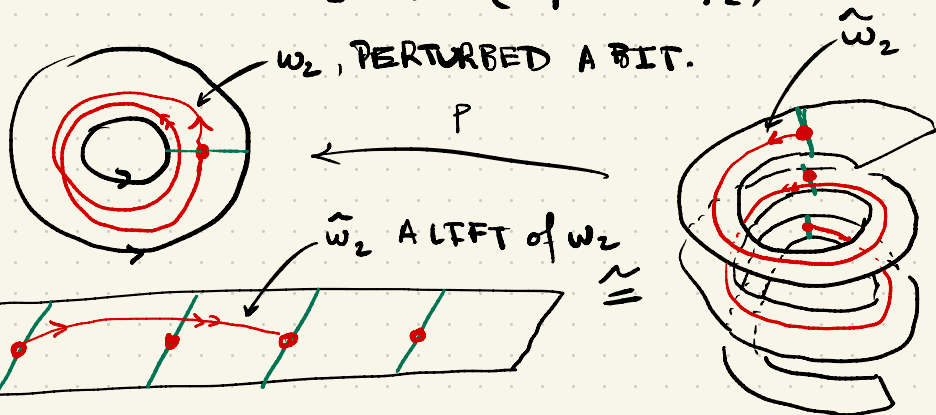 ω₂, PERTURBED A BIT.
ω̃₂
P
ω̃₂ A LIFT of ω₂
≅